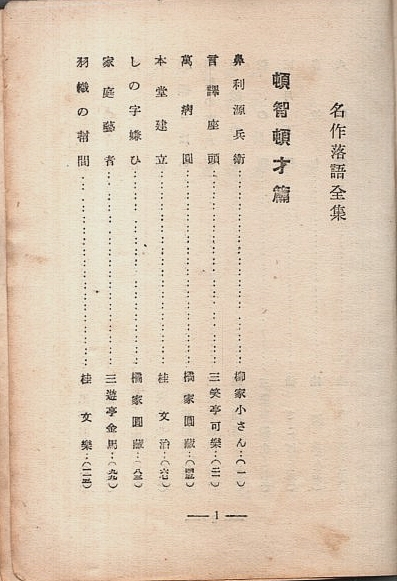 名作落語全集
頓智頓才篇
鼻利源兵衛……………………柳家小さん…(一)
言譯座頭……………………三笑亭可樂…(二一)
萬病圓……………………橘家圓藏…(四五)
本堂建立……………………桂文治…(六七)
しの字嫌ひ……………………橘家圓藏…(八三)
家庭藝者……………………三遊亭金馬…(九九)
羽織の幇間……………………桂文樂…(一一五)
— 1 —